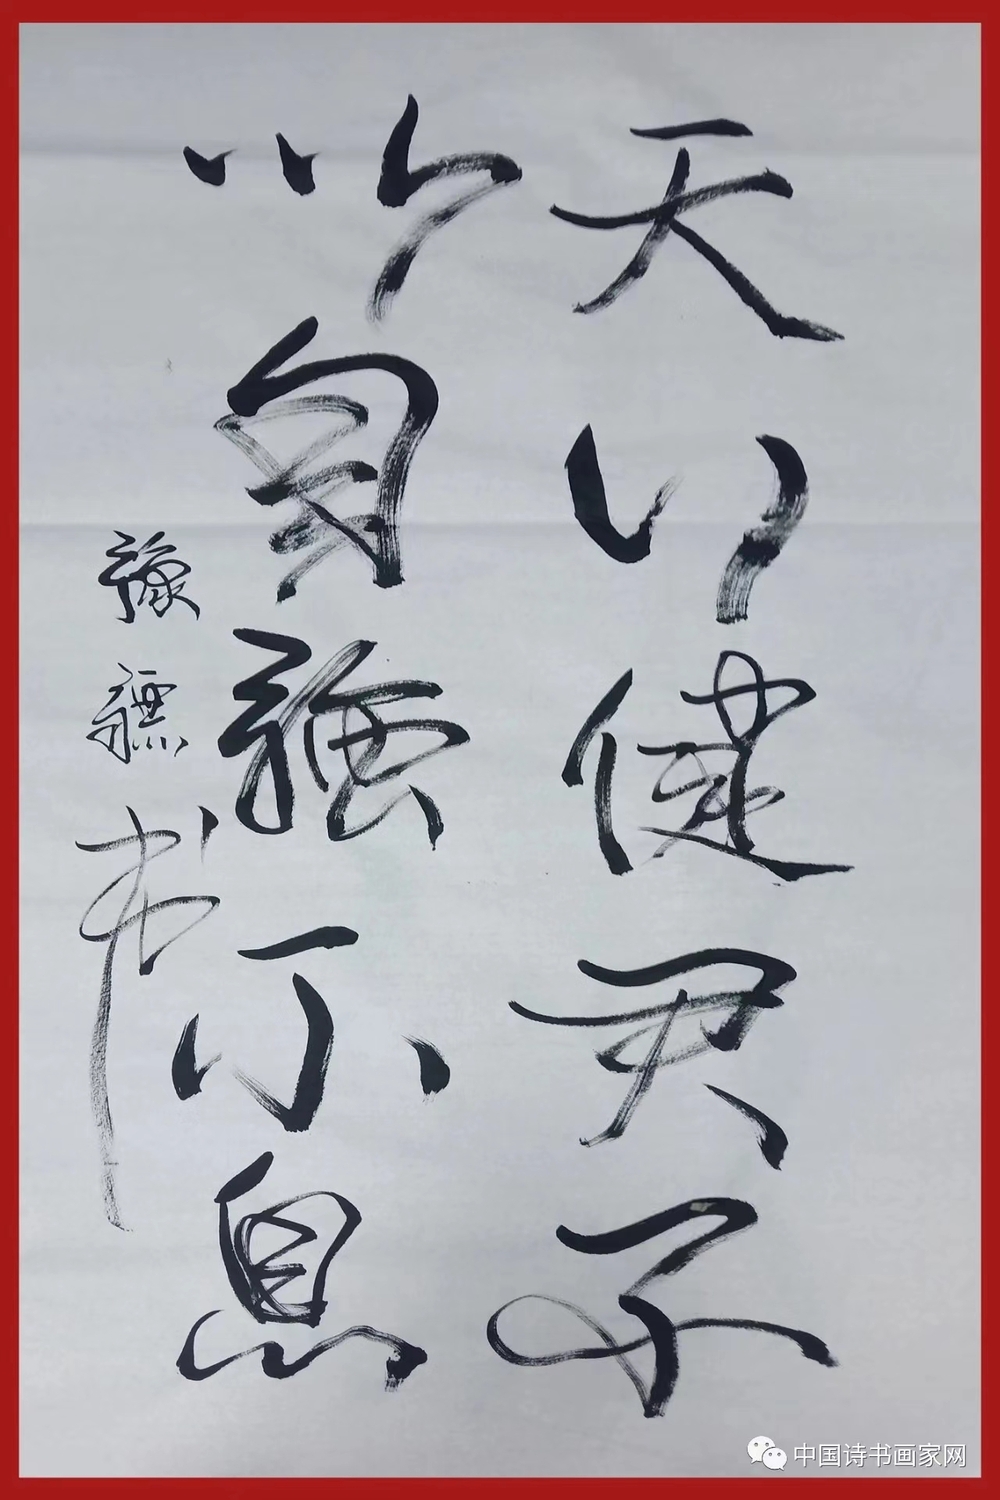 天行健君子
以自强不息
书
中国诗书画家网